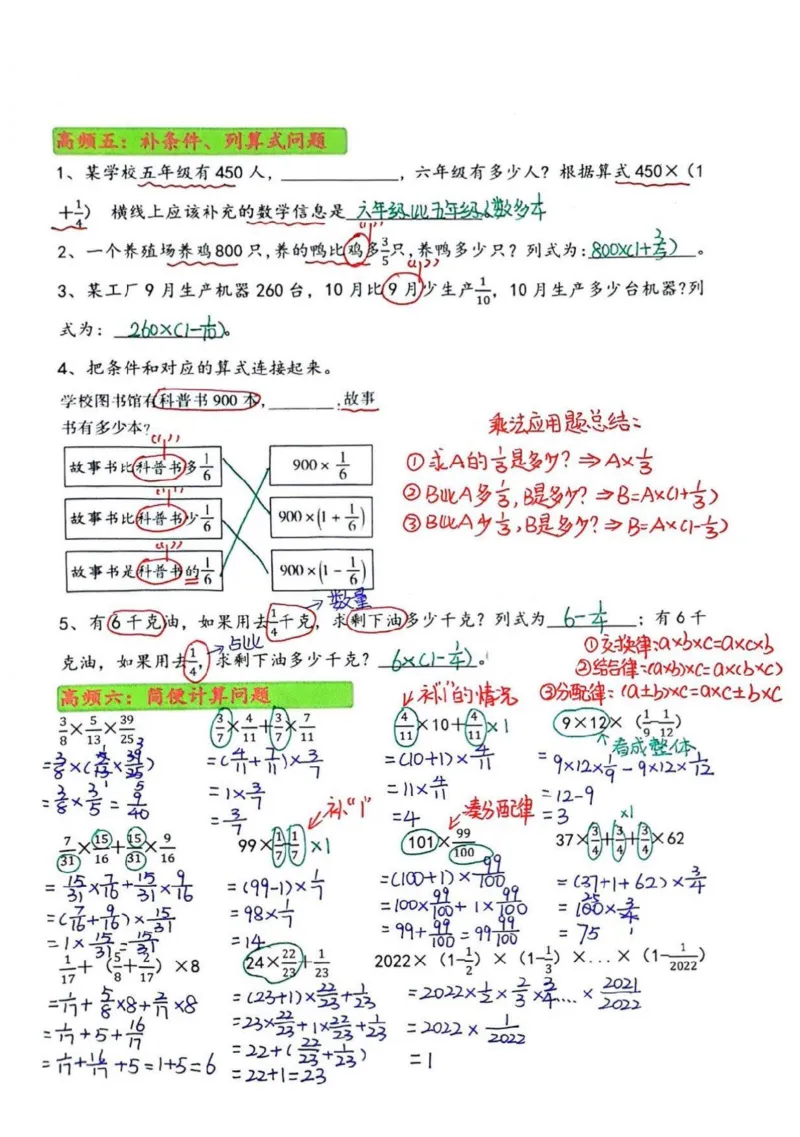 高频五：补条件、列算式问题
1、某学校五年级有 450 人，__________，六年级有多少人？根据算式 450×（1
+1/4） 横线上应该补充的数学信息是 六年级比五年级人数多1/4
2、一个养殖场养鸡800 只,养的鸭比鸡多3/5只,养鸭多少只？列式为：800×(1+3/5) 。
“1”
3、某工厂 9 月生产机器 260 台，10 月比 9 月少生产1/10，10 月生产多少台机器?列
“1”
式为： 260×(1-1/10)。
4、把条件和对应的算式连接起来。
学校图书馆有科普书 900 本，________,故事
书有多少本？
“1”
故事书比科普书多1/6
900×1/6
“1”
故事书比科普书少1/6
900×(1+1/6)
“1”
故事书是科普书的1/6
900×(1-1/6)
乘法应用题总结：
①求A的1/3是多少？⇒A×1/3
②B比A多1/3,B是多少？⇒B=A×(1+1/3)
③B比A少1/3,B是多少？⇒B=A×(1-1/3)
→数量
5、有 6 千克油，如果用去1/4千克，求剩下油多少千克？列式为 6-1/4 ；有 6 千
→占比
克油，如果用去1/4，求剩下油多少千克？ 6×(1-1/4)。
①交换律:a×b×c=a×c×b
②结合律:(a×b)×c=a×(b×c)
③分配律:(a±b)×c=a×c±b×c
高频六：简便计算问题
补“1”的情况
3/8×5/13×39/25
=3/8×(5/13×39/25)
=3/8×3/5=9/40
3/7×4/11+3/7×7/11
=(4/11+7/11)×3/7
=1×3/7
=3/7
4/11×10+4/11×1
=(10+1)×4/11
=11×4/11
=4
9×12×(1/9-1/12)
看成整体
=9×12×1/9-9×12×1/12
=12-9
=3
7/31×15/16+15/31×9/16
=15/31×7/16+15/31×9/16
=(7/16+9/16)×15/31
=1×15/31=15/31
补“1”
99×1/7-1/7×1
=(99-1)×1/7
=98×1/7
=14
凑分配律
101×99/100
=(100+1)×99/100
=100×99/100+1×99/100
=99+99/100=99 99/100
×1
37×3/4+3/4+3/4×62
=(37+1+62)×3/4
=100×3/4
=75
1/17+(5/8+2/17)×8
=1/17+5/8×8+2/17×8
=1/17+5+16/17
=1/17+16/17+5=1+5=6
24×22/23+1/23
=(23+1)×22/23+1/23
=23×22/23+1×22/23+1/23
=22+(22/23+1/23)
=22+1=23
2022×(1-1/2)×(1-1/3)×...×(1-1/2022)
=2022×1/2×2/3×3/4...×2021/2022
=2022×1/2022
=1